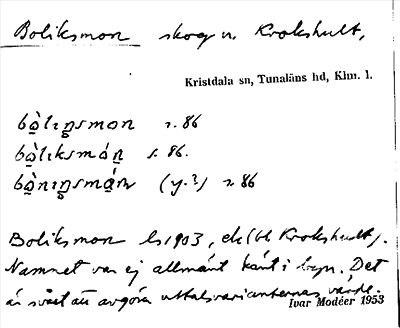 Boliksmon skog u. Krokshult,
Kristdala sn, Tunaläns hd, Klm. l.
bo̠̊̀lıŋsmon s. 86
bo̠̊̀lıksmón s. 86.
bo̠̊̀nıŋsmán (y.?) s. 86
Boliksmon ls 1903, ek (bl. Krokshult).
Namnet var ej allmänt känt i byn. Det
är svårt att avgöra uttalsvarianternas värde.
Ivar Modéer 1953